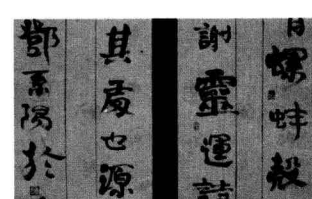 有螺蚌殻
謝靈運詩
其處也源
鄧紫陽於